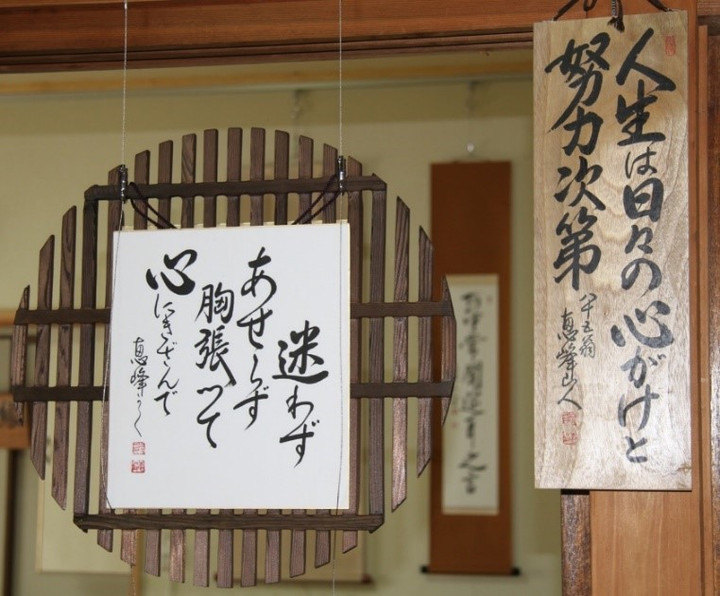 人生は日々の心がけと
努力次第
八十五翁
恵峰山人
迷わず
あせらず
胸張って
心にきざんで
恵峰かく